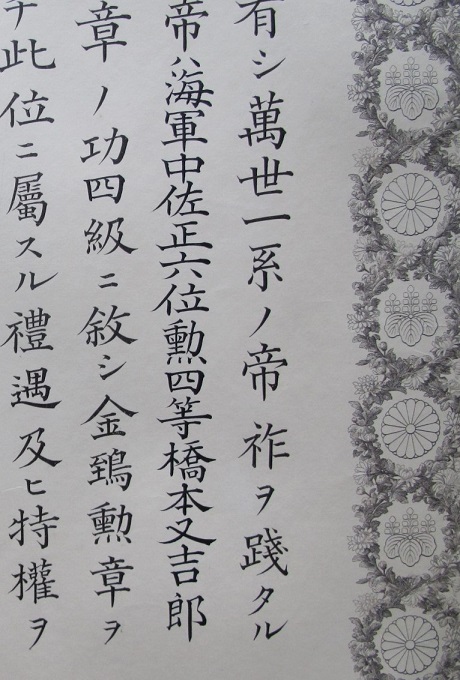 有シ萬世一系ノ帝祚ヲ踐タル
帝ハ海軍中佐正六位勲四等橋本又吉郎
章ノ功四級ニ敘シ金鵄勲章ヲ
テ此位ニ屬スル禮遇及ヒ特權ヲ